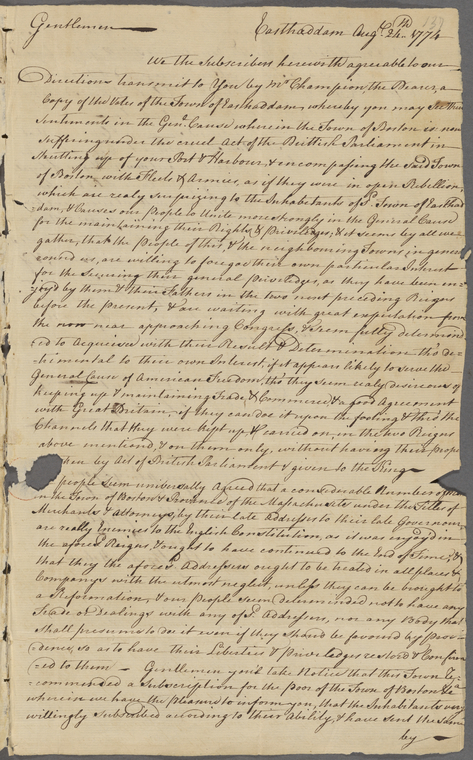 139
Gentlemen Easthaddam Augt. 24th. 1774
We the Subscribers herewith agreable to our
Directions transmit to You by Mr. Champion, the Bearer, a
Copy of the Votes of the Town of Easthaddam, whereby you may See their
Sentements in the Genl. Cause wherein the Town of Boston is now
Suffering under the cruel Act of the British Parliament in
Shutting up of your Port & Harbour, & incompassing the Said Town
of Boston with Fleets & Armies, as if they were in open Rebellion,
which are realy Surprizing to the Inhabitants of sd. Town of Easthad-
dam, & Causes our People to Unite more strongly in the General Cause
for the maintaining their Rights & Priviledges; & it seems by all we
gather, that the People of this, & the neighbouring Towns in general
round us, are willing to forego their own particular Interest
for the Securing their general Priveledges, as they have been en-
joyed by them & their Fathers in the two next preceding Reigns
before the present, & are waiting with great expectation from
the now near approaching Congress, & seem fully determon-
ed to Acquiesce with their Result & Determination tho' de-
trimental to their own Interest, if it appears likely to serve the
General Cause of American Freedom, tho' they seem realy desireous of
keeping up & maintaining Trade & Commerce & a good Agreement
with Great Britain, if they can doe it upon the footing & thro' the
Channels that they were kept up & carried on, in the two Reigns
above mentioned, & on them only, without having their prope
then by Act of British Parliament & given to the King
people seem universally Agreed that a considerable Number of
in the Town of Boston & Province of the Massachusetts under the Titles of
Merchants & Attorneys, by their late Addresses to their late Governour
are really Enemies to the English Constitution, as it was injoyed in
the aforesd. Reigns, & ought to have continued to the End of Time; &
that they the aforesd. Addressers ought to be treated in all places &
Companys with the utmost neglect unless they can be brought to
a Reformation, & our People seem determinded not to have any
Trade or Dealings with any of sd. Addressers, nor any Body that
Shall presume to doe it even if they Should be favoured by Prov-
idence, so as to have their Liberties & Priveledges restord & Confirm-
ed to them — Gentlemen you'l take Notice that this Town Re-
commended a Subscription for the Poor of the Town of Boston &c
wherein we have the pleasure to inform you, that the Inhabitants very
willingly Subscribed according to their Ability, & have sent the Same
by